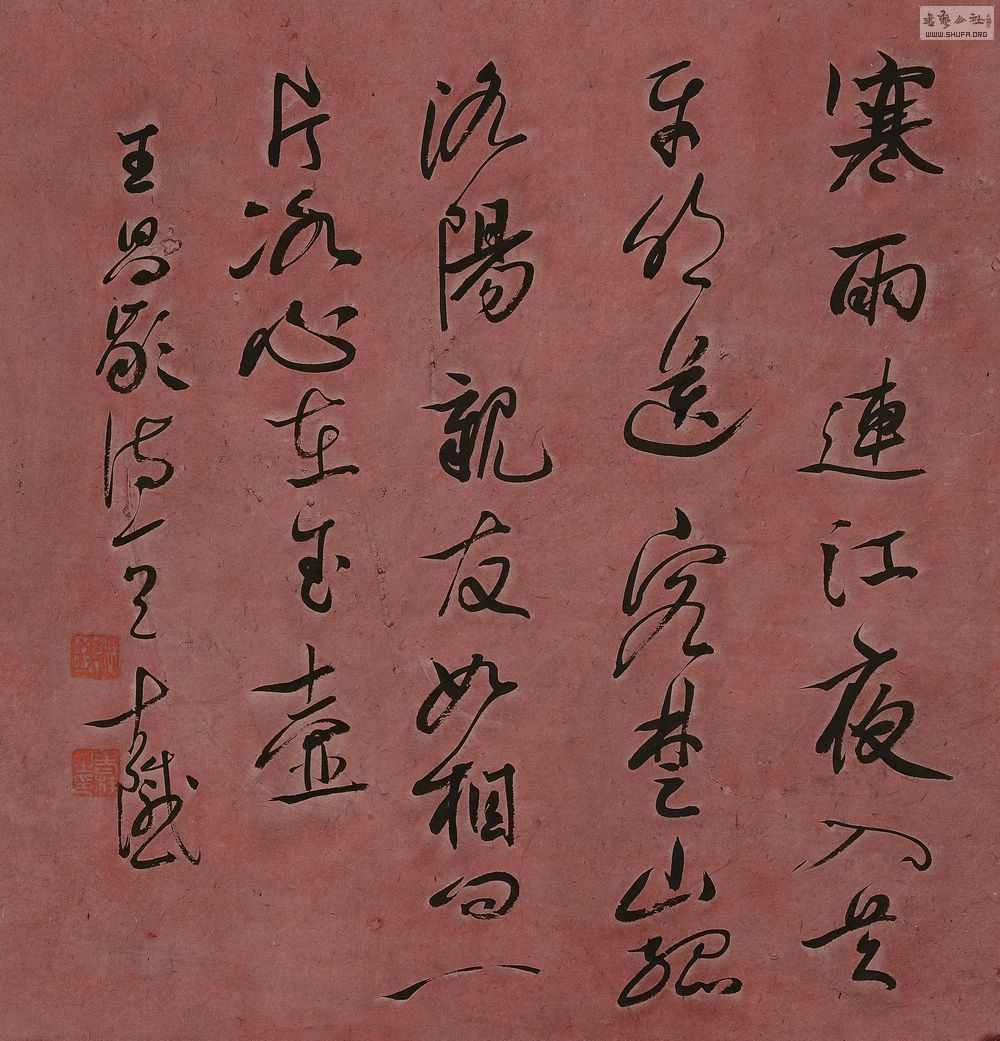 寒雨連江夜入吳
平明送客楚山孤
洛陽親友如相問一
片冰心在玉壺
王昌齡詩
書藝公社
WWW.SHUFA.ORG